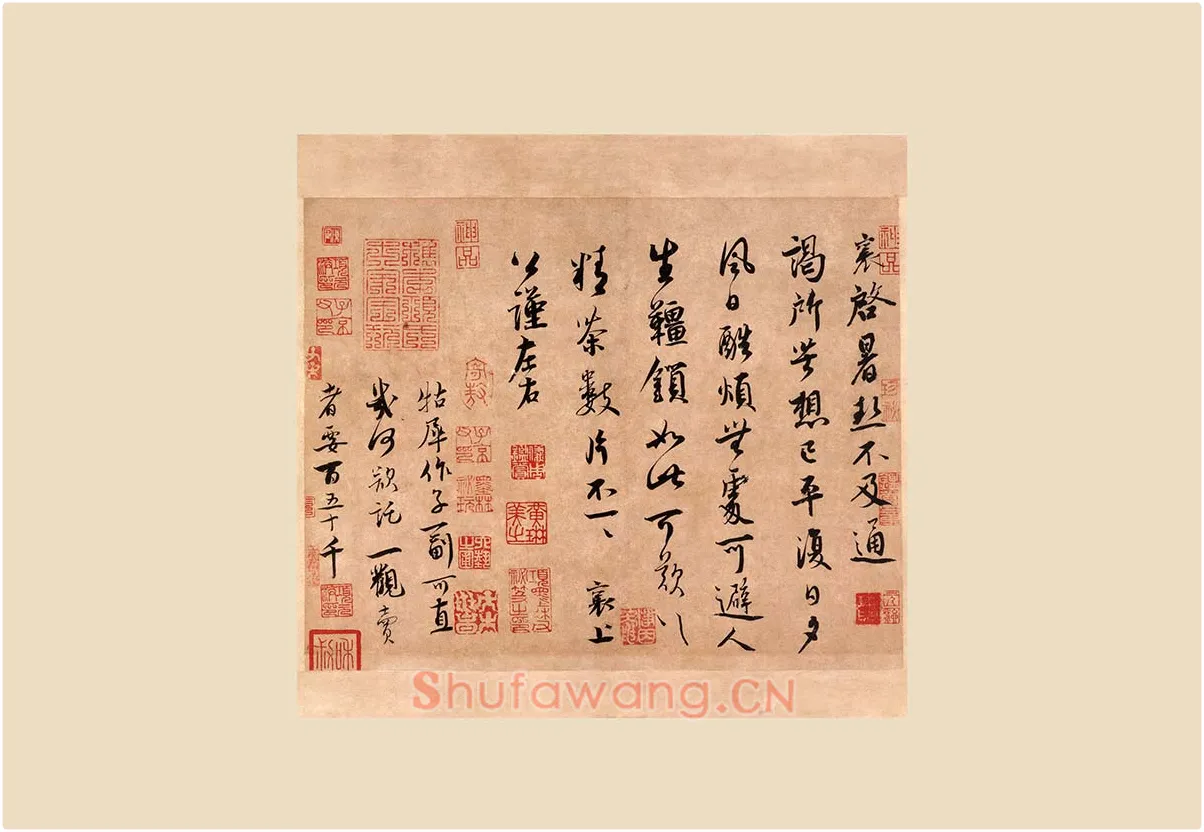 襄啓暑熱不及通
謁所苦想已平復日夕
風日酷煩無處可避人
生韁鎖如此可歎〻
精茶數片不一〻 襄上
公謹左右
牯犀作子一副可直
幾何欲託一觀賣
者要百五十千
Shufawang.CN